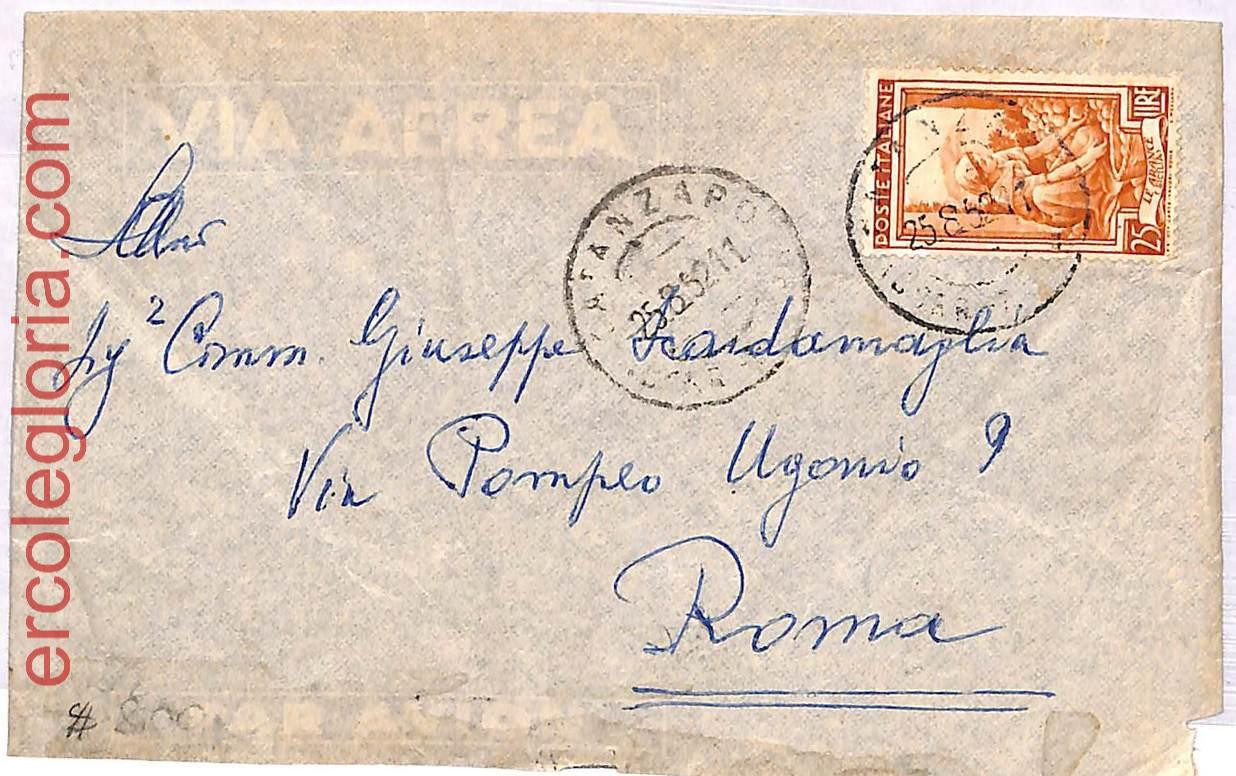 ercolegloria.com
VIA AEREA
POSTE ITALIANE
LIRE
25
LE ARANCE
CATANZARO
25.8.52.11
25.8.52.11
Comm. Giuseppe Scardamaglia
Via Pompeo Ugonio 9
Roma
PAR AVION